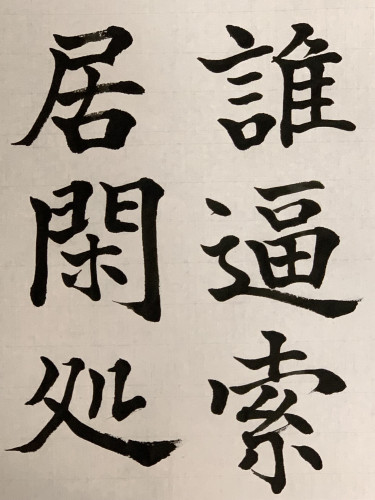 誰逼索
居閑処